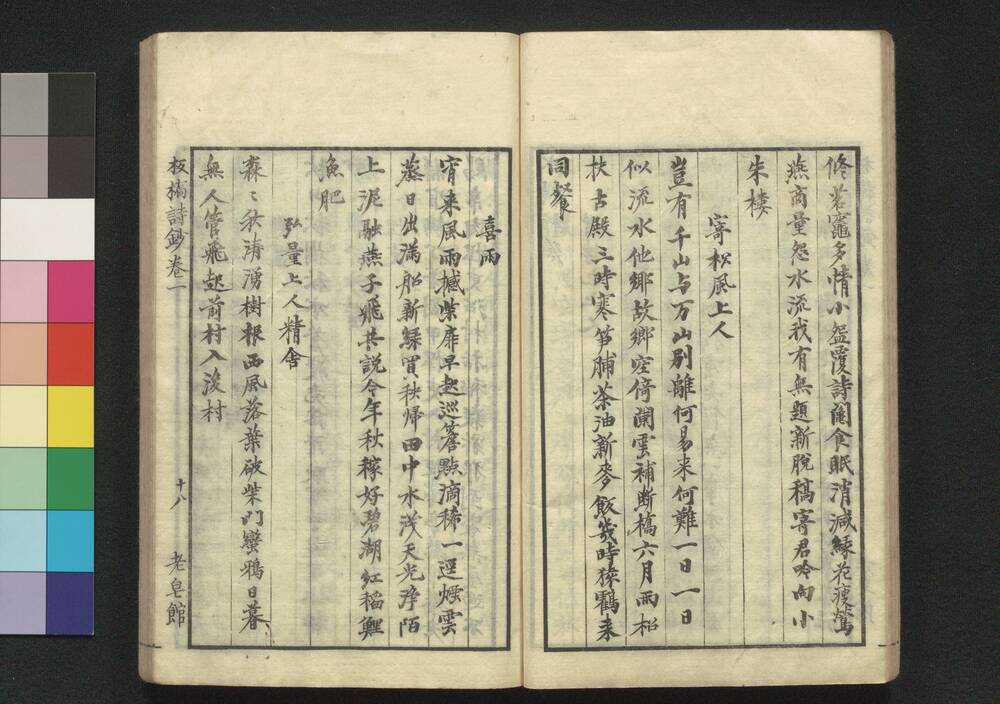 修茗竈多情小盌覆詩闌食眠消減緣花瘦鶯
燕商量怨水流我有無題新脫稿寄君吟向小
朱樓
寄松風上人
豈有千山与万山別離何易来何難一日一日
似流水他鄉故鄉空倚闌雲補断橋六月雨松
扶古殿三時寒笋脯茶油新麥飯幾時猿鶴来
同餐
喜雨
宵来風雨撼柴扉早起巡簷點滴稀一逕煙雲
蒸日出滿船新綠買秧歸田中水浅天光淨陌
上泥融燕子飛共説今年秋稼好碧湖紅稻鯉
魚肥
弘量上人精舍
森〻秋涛湧樹根西風落葉破柴门蠻鴉日暮
無人管飛起前村入後村
板橋詩鈔卷一
十八
老皂館